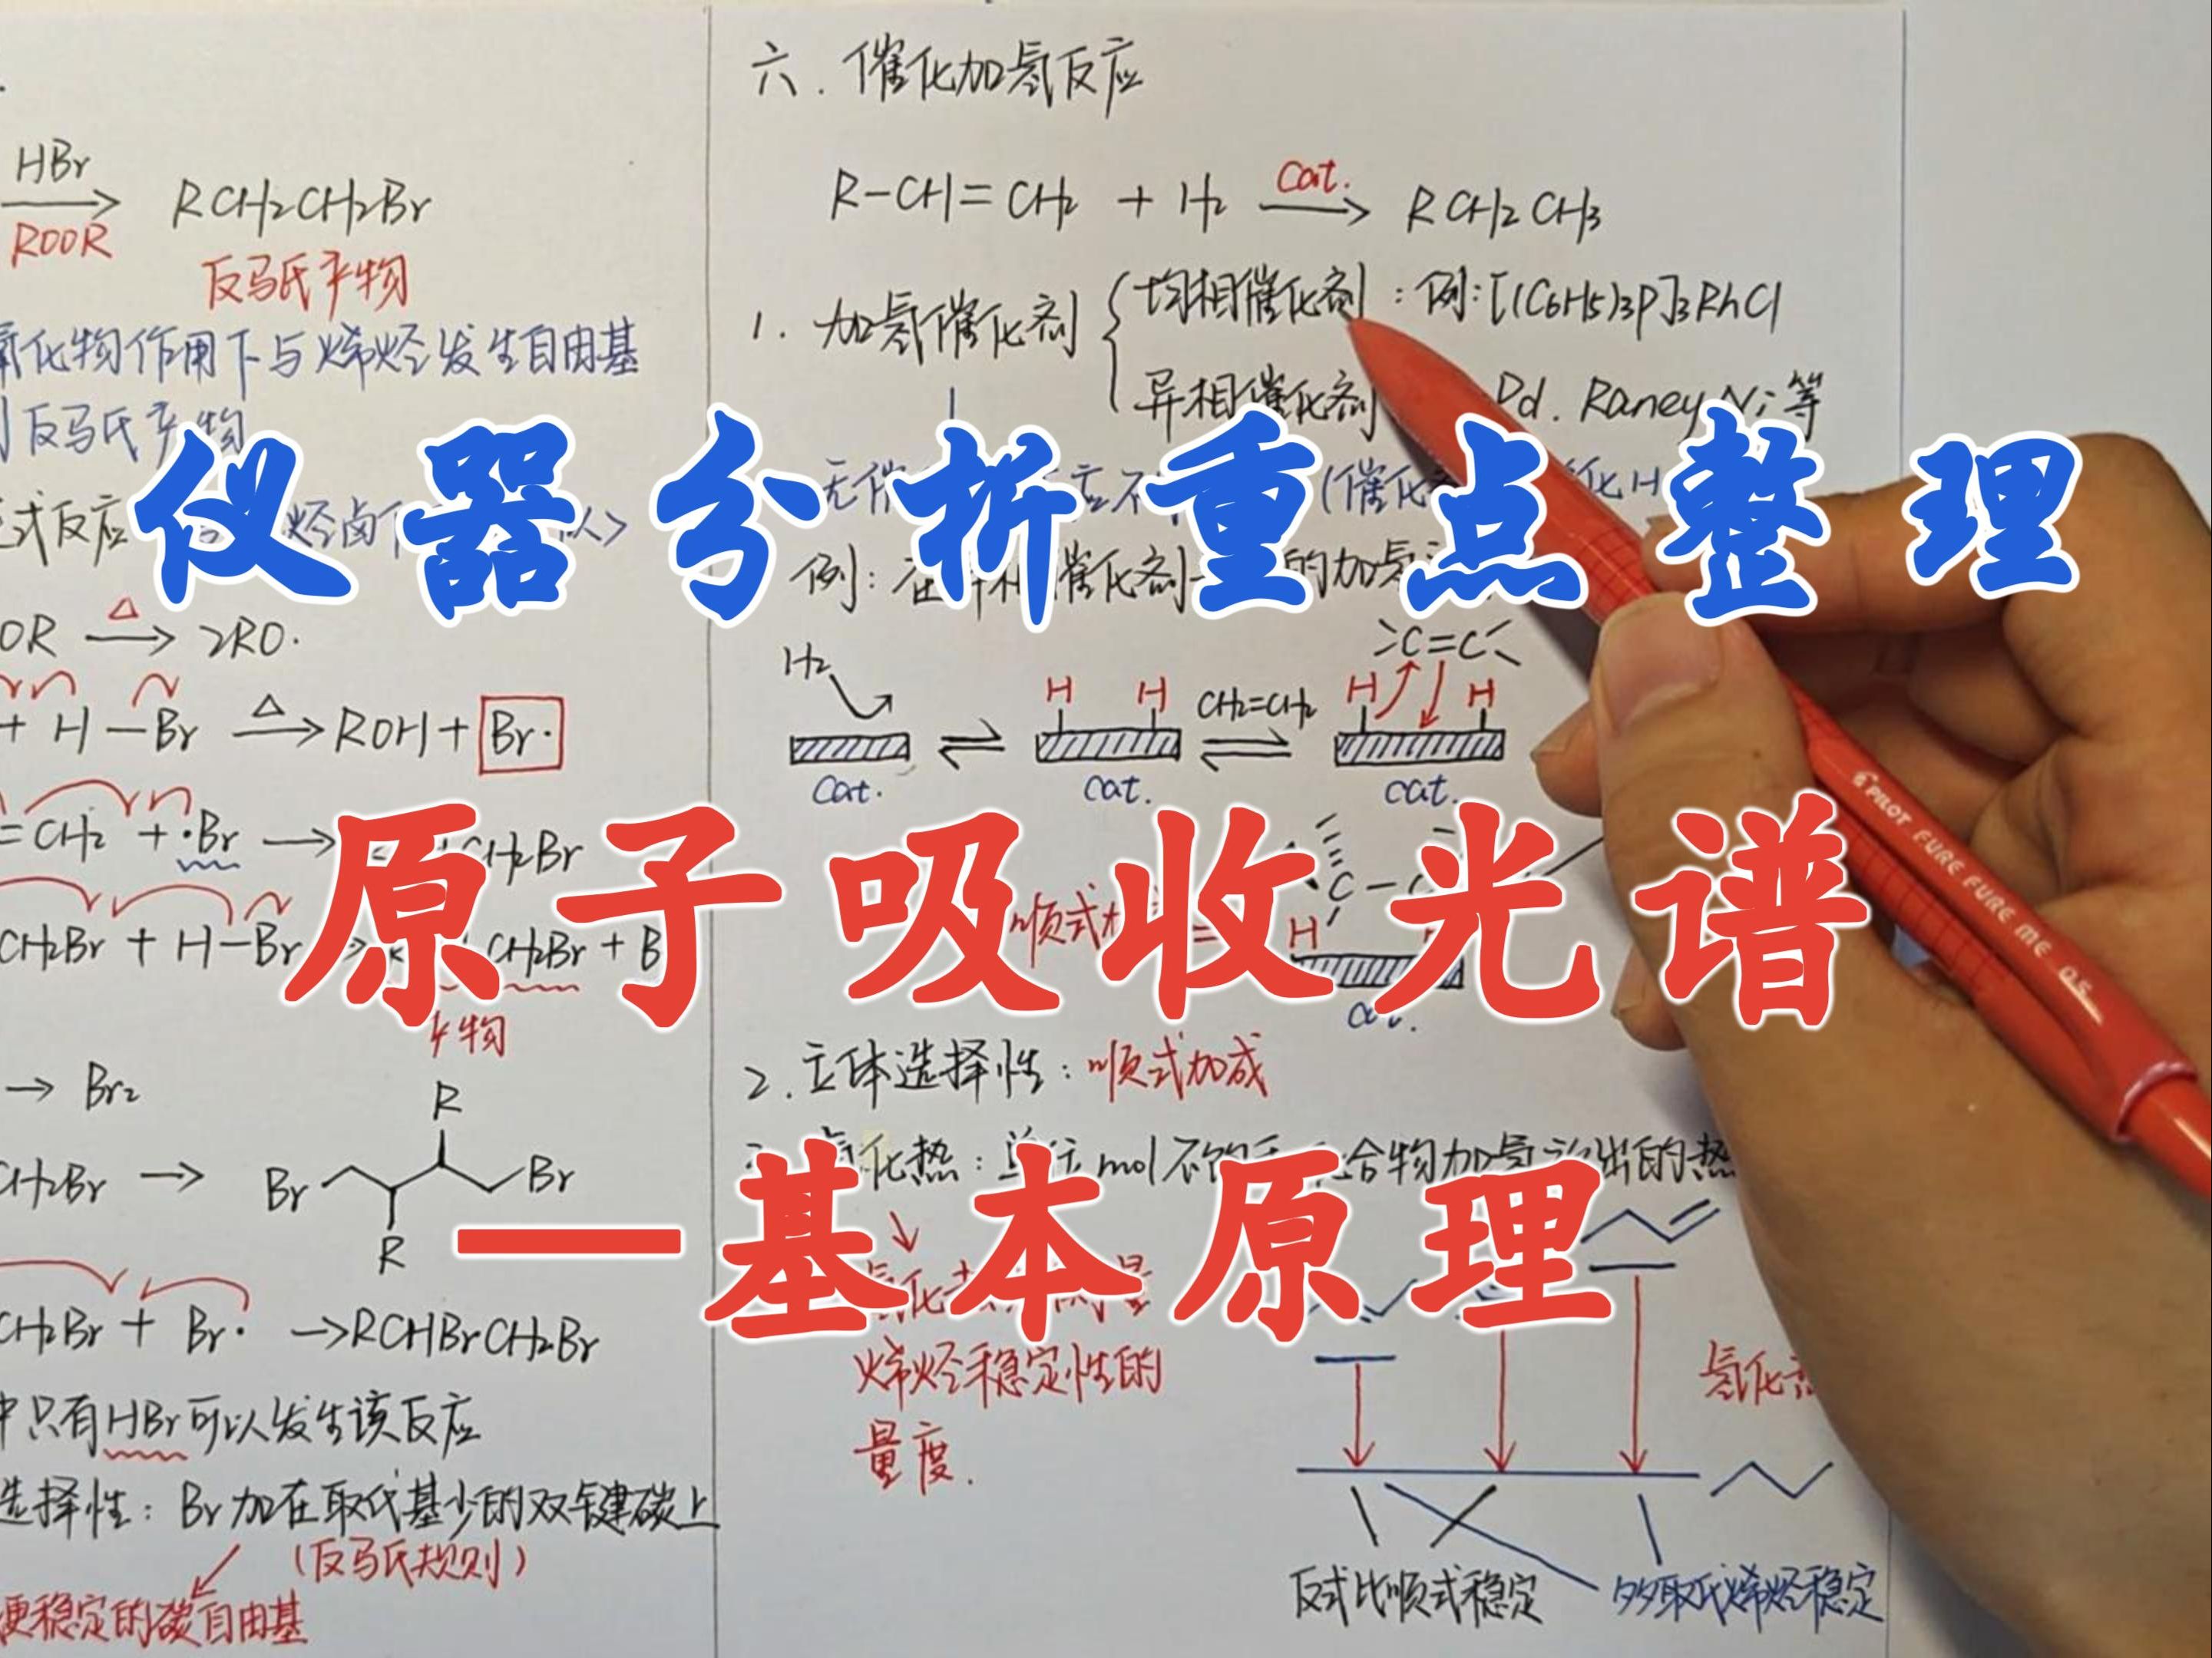 HBr
ROOR
RCH₂CH₂Br
反马氏产物
氧化物作用下与烯烃发生自由基
反马氏产物
式反应
OR △→ 2RO·
+ H—Br △→ ROH + Br·
=CH₂ + ·Br → CH₂Br
CH₂Br + H—Br → CH₂Br + B
产物
→ Br₂
CH₂Br →
R
Br
Br
R
CH₂Br + Br· → RCHBrCH₂Br
中只有HBr可以发生该反应
选择性：Br加在取代基少的双键碳上
（反马氏规则）
稳定的碳自由基
六．催化加氢反应
R-CH=CH₂ + H₂ Cat.→ RCH₂CH₃
1．加氢催化剂
均相催化剂：例：[(C₆H₅)₃P]₃RhCl
异相催化剂 Pd. Raney Ni等
仪器分析重点整理
H₂
H H
CH₂=CH₂
C=C
H H
cat.
cat.
cat.
原子吸收光谱
C
H
2.立体选择性：顺式加成
化热：
mol
合物加氢
出的热
—基本原理
烯烃稳定性的
量度．
氢化
反式比顺式稳定
多取代烯烃稳定
PILOT FURE FURE ME 0.5